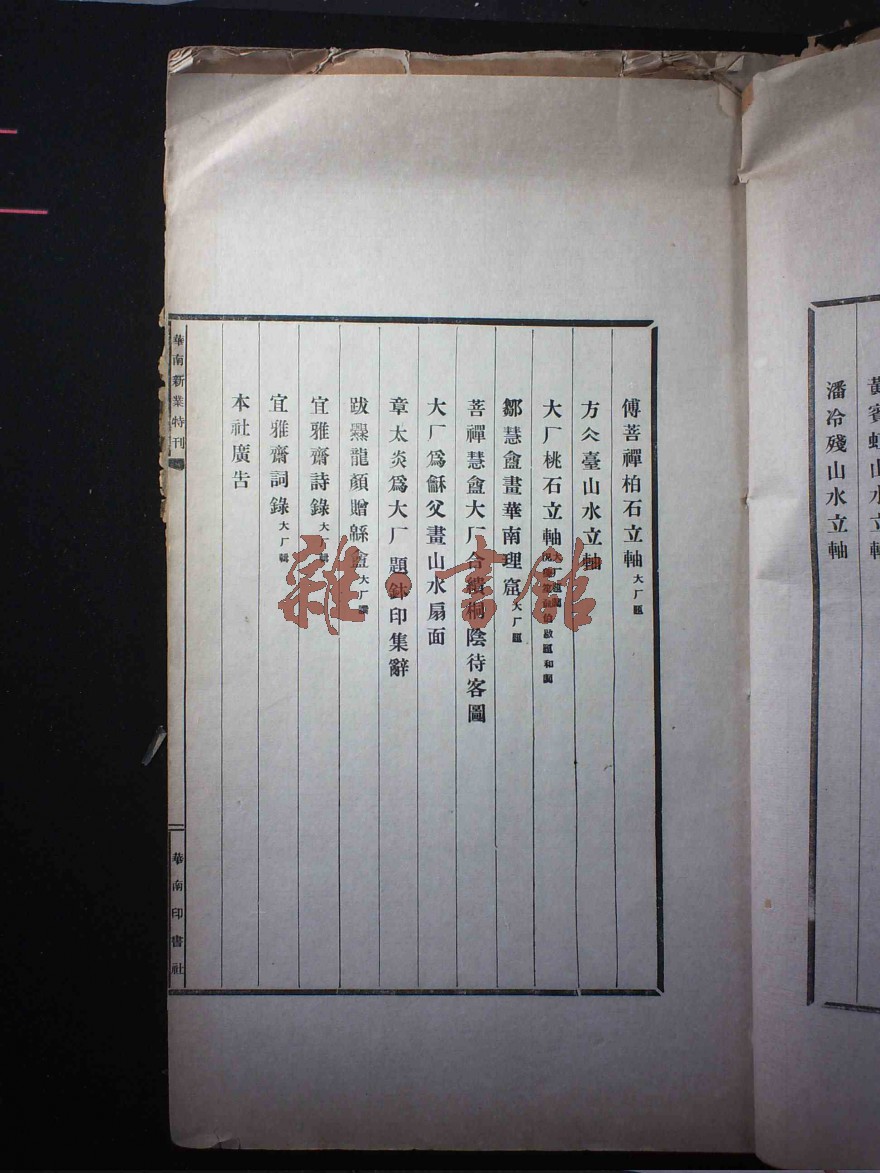 山水立軸
潘冷殘山水立軸
傅菩禪柏石立軸大厂題
方亽臺山水立軸
大厂桃石立軸
鄒慧盦畫華南理窟大厂題
菩禪慧盦大厂合繢桐陰待客圖
大厂爲龢父畫山水扇面
章太炎爲大厂題鉢印集辭
跋爨龍顏贈緜盦大厂譔
宜雅齋詩錄大厂輯
宜雅齋詞錄大厂輯
本社廣告
華南新業特刊
華南印書社
雜·書館